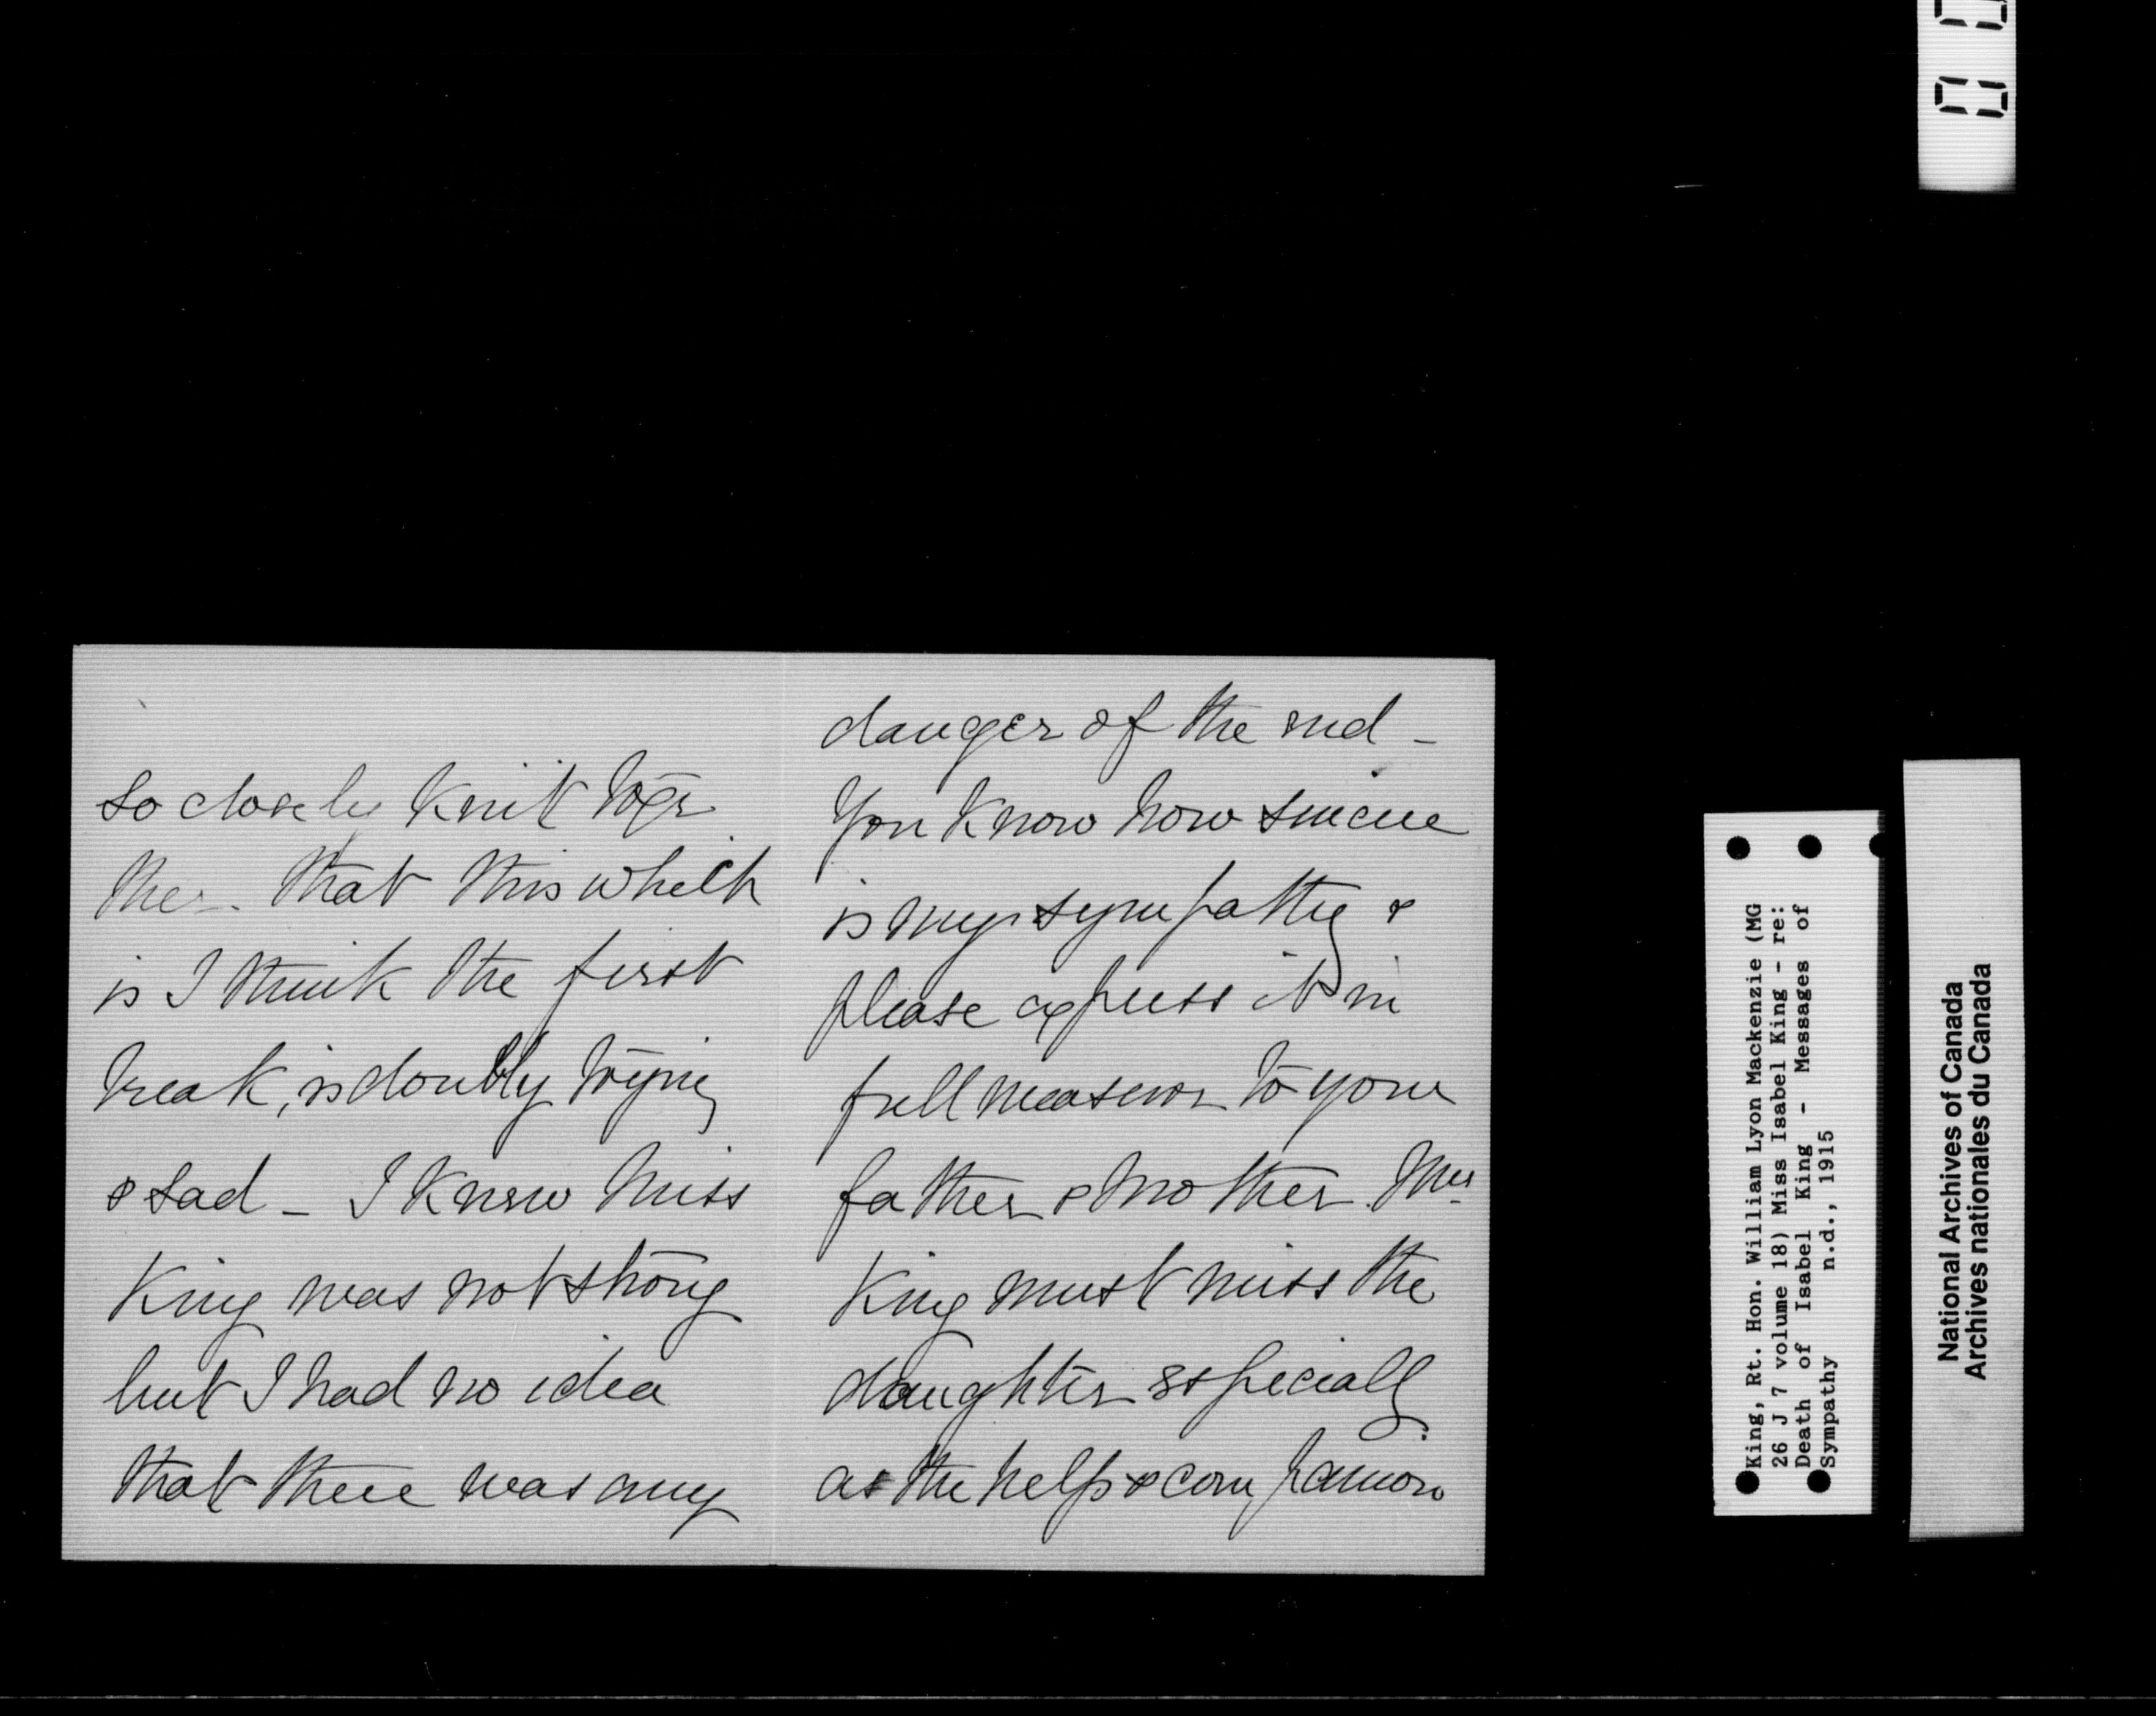 so closely knit toge
ther. that this which
is I think the first
break, is doubly trying
& sad - I knew Miss
King was not strong
but I had no idea
that there was any
danger of the end -
You know how sincere
is my sympathy &
please express it in
full measure to your
father & mother. Mrs
King must miss the
daughter especially
as the help & companion
King, Rt. Hon. William Lyon Mackenzie (MG
26 J 7 volume 18) Miss Isabel King - re:
Death of Isabel King - Messages of
Sympathy n.d., 1915
National Archives of Canada
Archives nationales du Canada